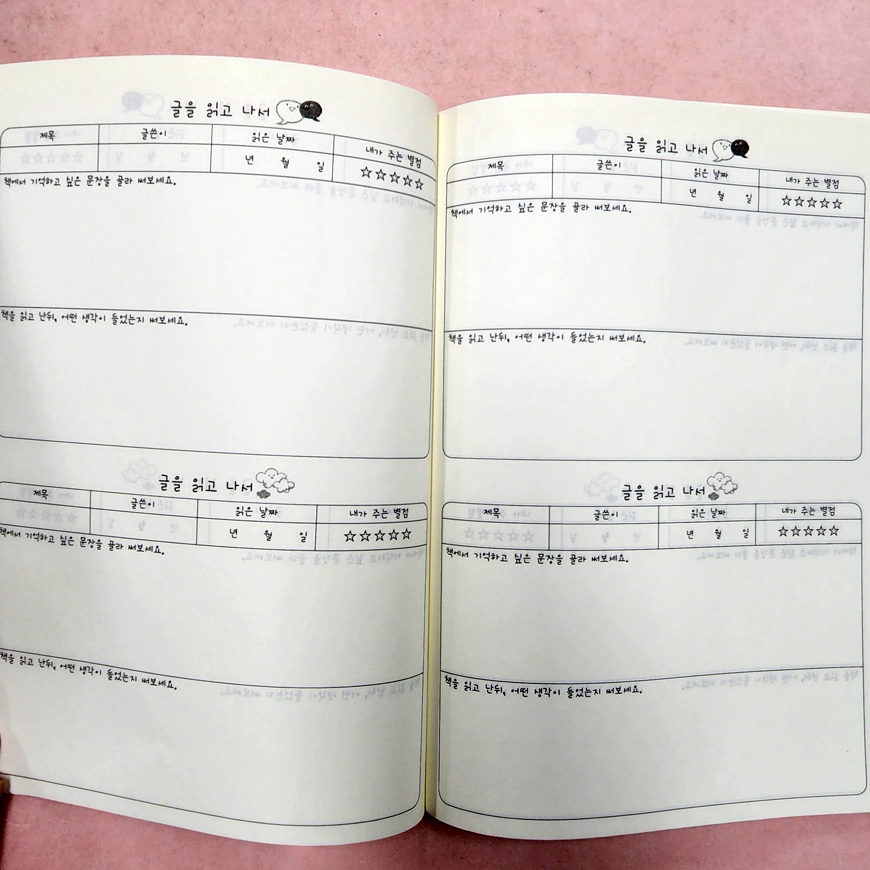 글을 읽고 나서
제목 글쓴이 읽은 날짜 내가 주는 별점
년 월 일 ☆☆☆☆☆
책에서 기억하고 싶은 문장을 골라 써보세요.
책을 읽고 난뒤, 어떤 생각이 들었는지 써보세요.
글을 읽고 나서
제목 글쓴이 읽은 날짜 내가 주는 별점
년 월 일 ☆☆☆☆☆
책에서 기억하고 싶은 문장을 골라 써보세요.
책을 읽고 난뒤, 어떤 생각이 들었는지 써보세요.
글을 읽고 나서
제목 글쓴이 읽은 날짜 내가 주는 별점
년 월 일 ☆☆☆☆☆
책에서 기억하고 싶은 문장을 골라 써보세요.
책을 읽고 난뒤, 어떤 생각이 들었는지 써보세요.
글을 읽고 나서
제목 글쓴이 읽은 날짜 내가 주는 별점
년 월 일 ☆☆☆☆☆
책에서 기억하고 싶은 문장을 골라 써보세요.
책을 읽고 난뒤, 어떤 생각이 들었는지 써보세요.